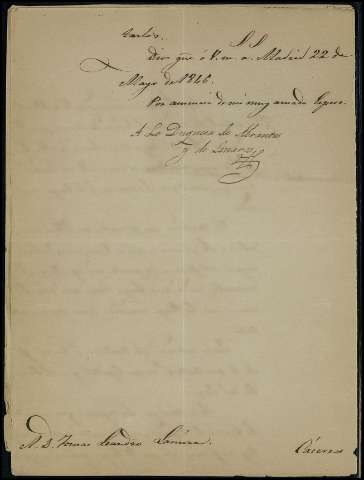 Dios gue á V. m. a. Madrid 22 de
Mayo de 1846.
Por ausencia de mi muy amado Esposo.
A La Duquesa de Abrantes
y de Linares
A. D. Tomas Leandro
Cáceres